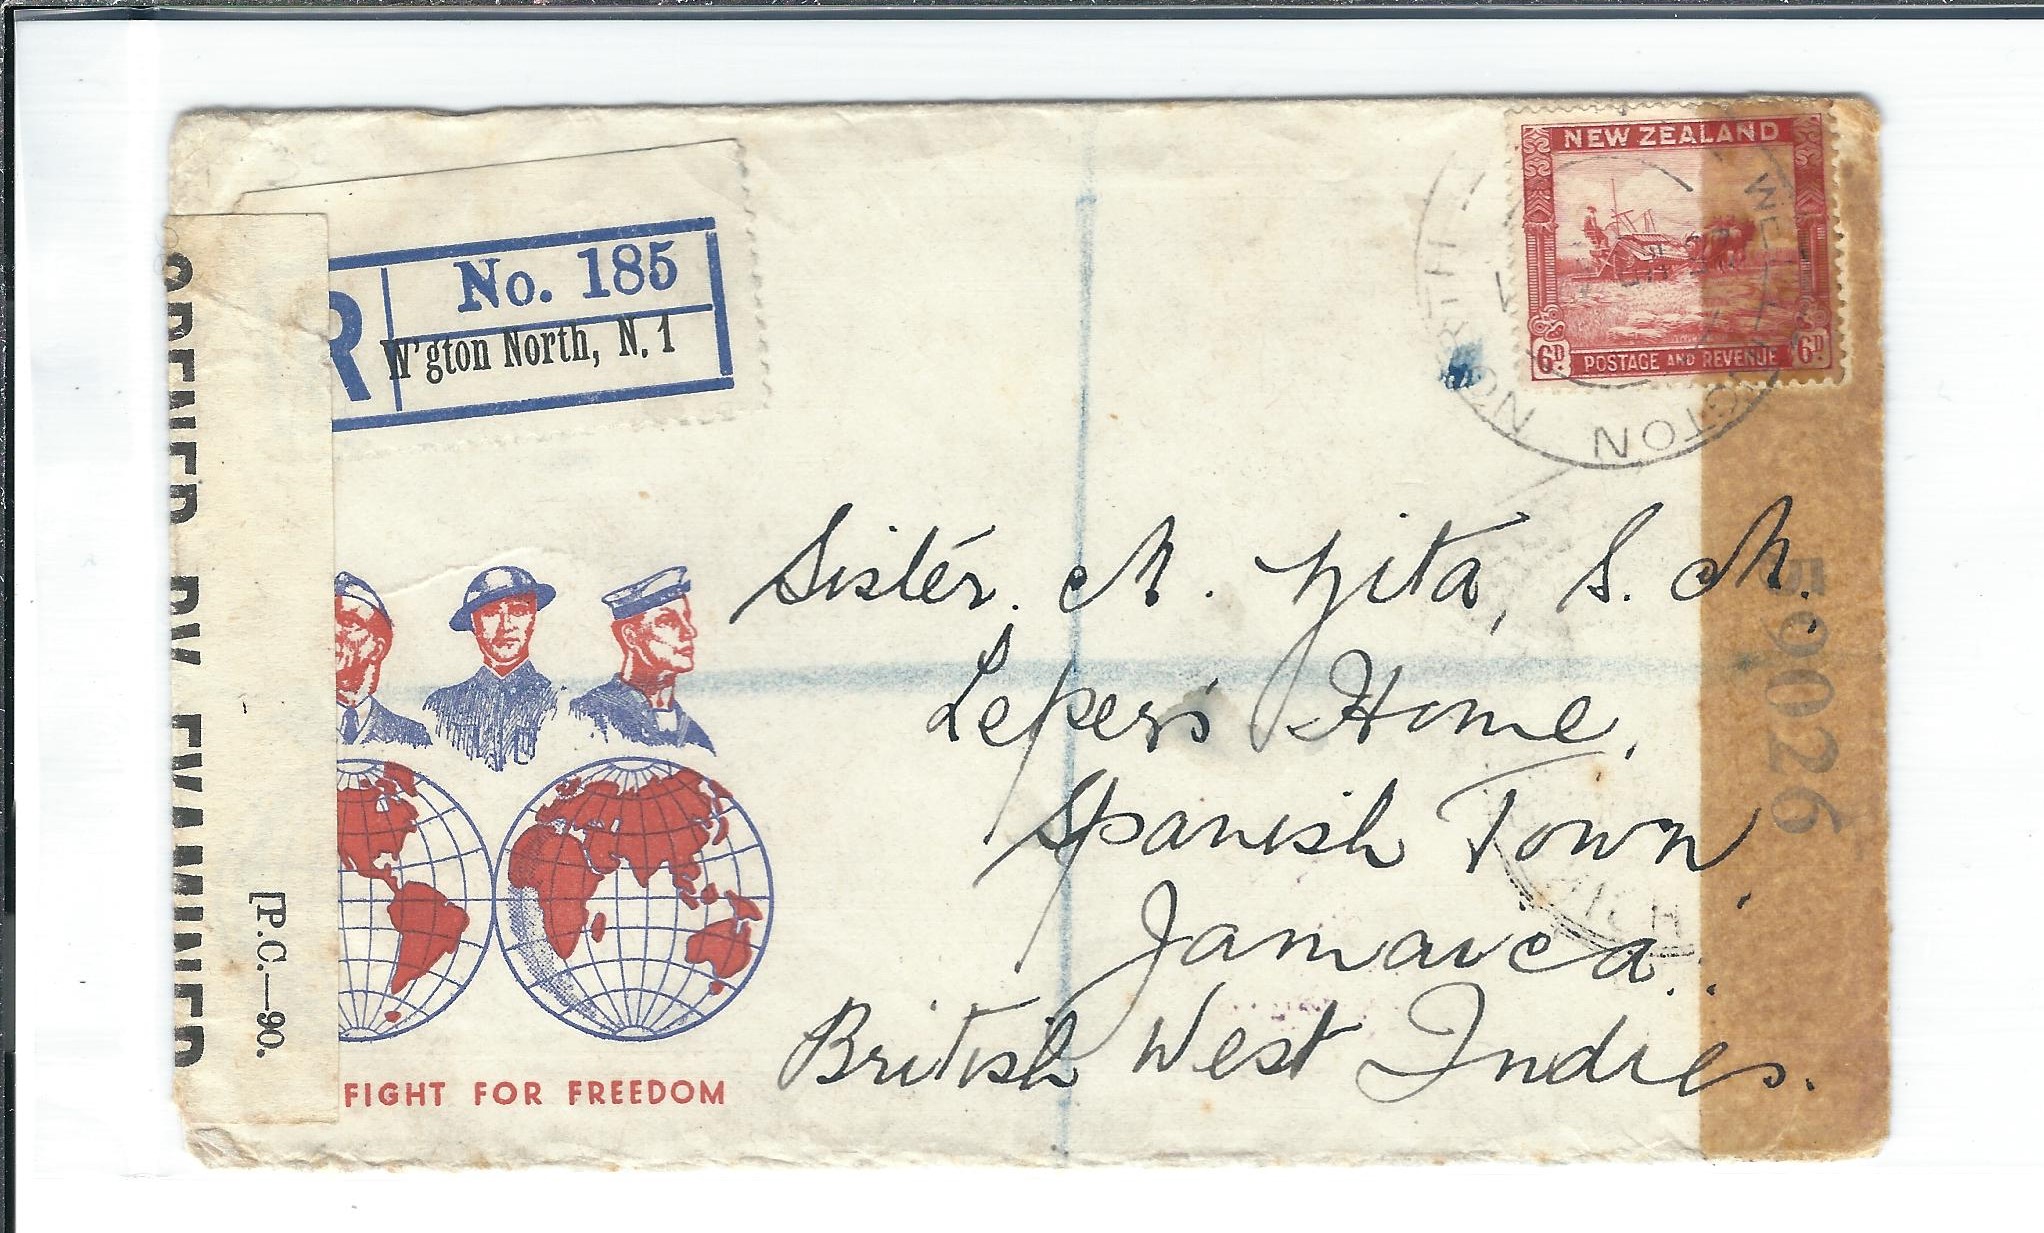 No. 185
R
W'gton North, N. 1
NEW ZEALAND
6D POSTAGE AND REVENUE 6D
WELLINGTON NORTH
OPENED BY EXAMINER
[P.C.—90.
59026
Sister. M. Zita, S. M.
Lepers Home,
Spanish Town,
Jamaica.
British West Indies.
FIGHT FOR FREEDOM